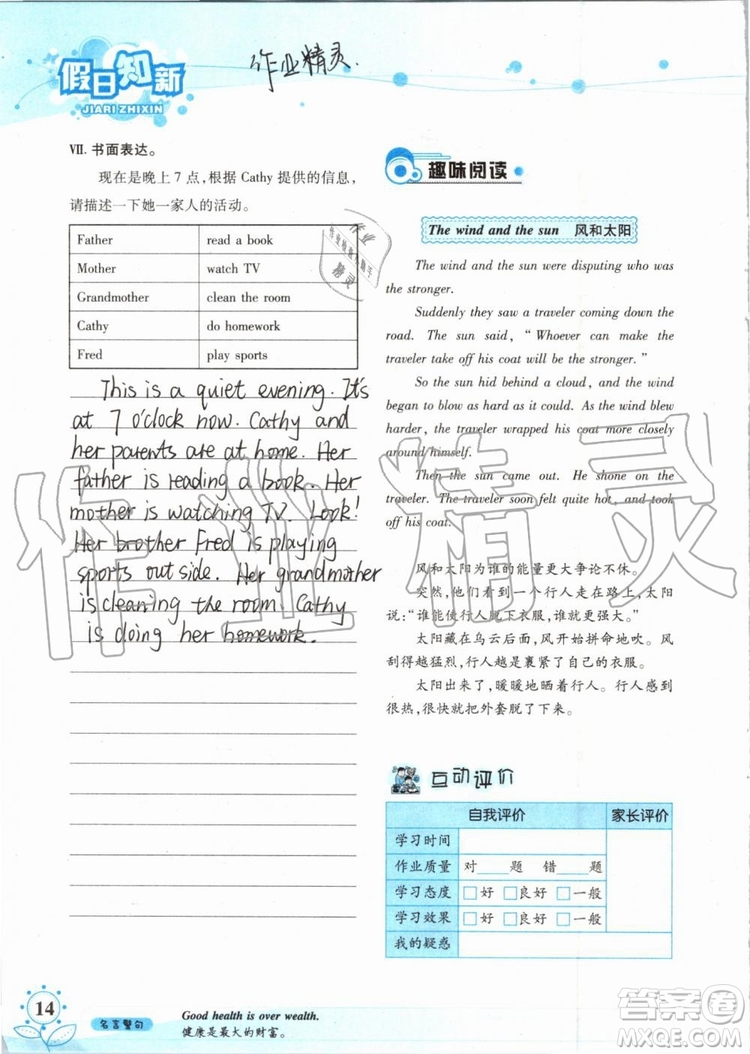 作业精灵.
假日知新
JIARI ZHIXIN
VII. 书面表达。
现在是晚上 7 点，根据 Cathy 提供的信息，
请描述一下她一家人的活动。
Father read a book
Mother watch TV
Grandmother clean the room
Cathy do homework
Fred play sports
This is a quiet evening. It's
at 7 o'clock now. Cathy and
her parents are at home. Her
father is reading a book. Her
mother is watching TV. Look!
Her brother Fred is playing
sports outside. Her grandmother
is cleaning the room. Cathy
is doing her homework.
趣味阅读
The wind and the sun 风和太阳
The wind and the sun were disputing who was
the stronger.
Suddenly they saw a traveler coming down the
road. The sun said, “Whoever can make the
traveler take off his coat will be the stronger.”
So the sun hid behind a cloud, and the wind
began to blow as hard as it could. As the wind blew
harder, the traveler wrapped his coat more closely
around himself.
Then the sun came out. He shone on the
traveler. The traveler soon felt quite hot, and took
off his coat.
风和太阳为谁的能量更大争论不休。
突然，他们看到一个行人走在路上，太阳
说：“谁能使行人脱下衣服，谁就更强大。”
太阳藏在乌云后面，风开始拼命地吹。风
刮得越猛烈，行人越是裹紧了自己的衣服。
太阳出来了，暖暖地照着行人。行人感到
很热，很快就把外套脱了下来。
互动评价
自我评价 家长评价
学习时间
作业质量 对 题 错 题
学习态度 □好 □良好 □一般
学习效果 □好 □良好 □一般
我的疑惑
14
名言警句
Good health is over wealth.
健康是最大的财富。
作业精灵
答案卷
MXQE.COM